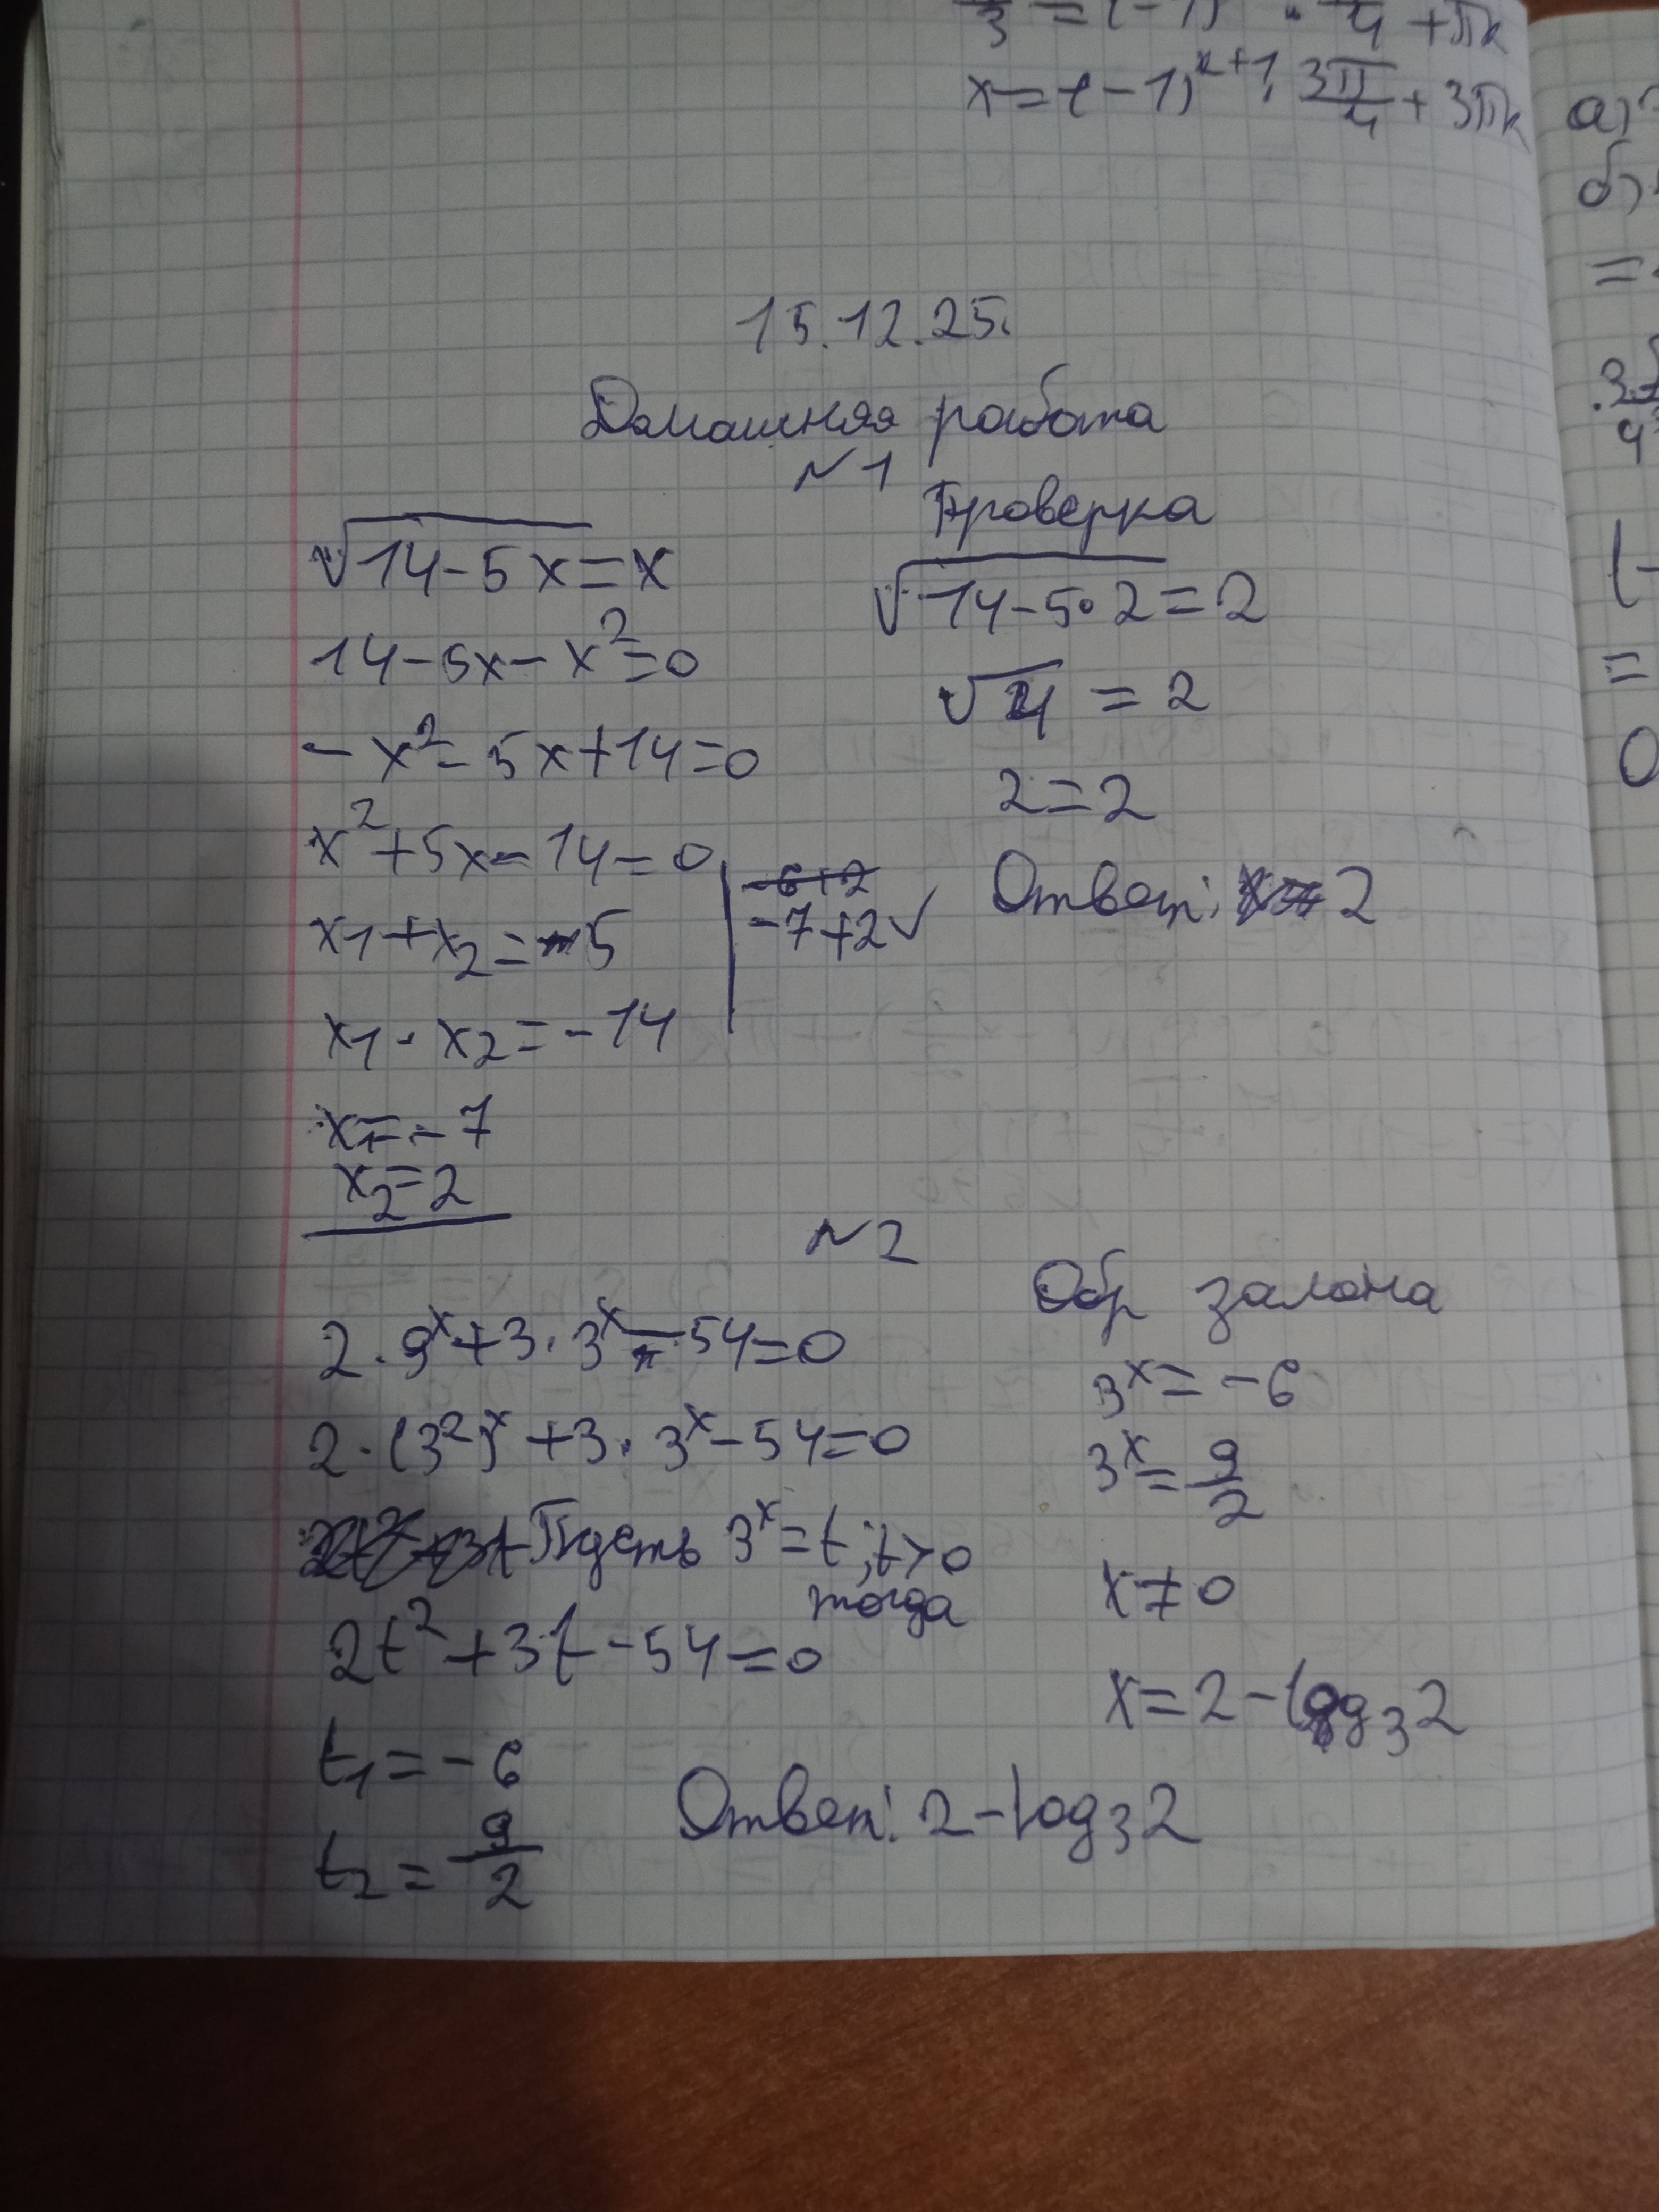 x=(-1)^{k+1}·3π/4+3πk
15.12.25.
Домашняя работа
№1
√(14-5x)=x
14-5x-x²=0
-x²-5x+14=0
x²+5x-14=0
x₁+x₂=-5
x₁·x₂=-14
x₁=-7
x₂=2
-6+2
-7+2✓
Проверка
√(14-5·2)=2
√4=2
2=2
Ответ: 2
№2
2·9ˣ+3·3ˣ-54=0
2·(3²)ˣ+3·3ˣ-54=0
Пусть 3ˣ=t; t>0
тогда
2t²+3t-54=0
t₁=-6
t₂=9/2
Обр замена
3ˣ=-6
3ˣ=9/2
x≠0
x=2-log₃2
Ответ: 2-log₃2